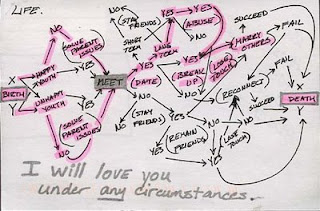 LIFE.
NO
NO
(STAY FRIENDS)
YES
YES
(ABUSE)
SUCCEED
FAIL
SOLVE PARENT ISSUES
SHORT TERM
LONG TERM
NO
YES
MARRY OTHERS
X
HAPPY YOUTH
YES
(LOSE TOUCH)
BIRTH
MEET
(DATE)
(BREAK UP)
(RECONNECT)
FAIL
X
DEATH
Y
UNHAPPY YOUTH
YES
NO
YES
NO
SUCCEED
Y
(SOLVE PARENT ISSUES)
(STAY FRIENDS)
NO
NO
YES
(REMAIN FRIENDS)
(LOSE TOUCH)
NO
YES
I will love you
under any circumstances.